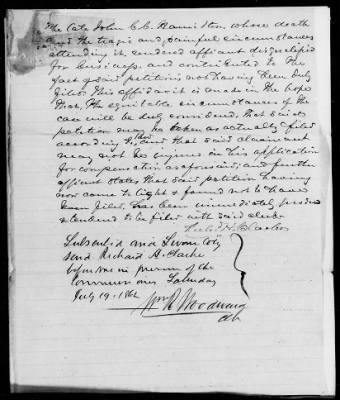 The late John C.C. Hamilton, whose death
and the tragic and painful circumstances
attending it, rendered affiant disqualified
for business, and contributed to the
fact of said petition not having been duly
filed. This affidavit is made in the hope
that, the equitable circumstances of the
case will be duly considered. That said
petition may be taken as actually filed
according to law, and that said claimant
may not be injured in his application
for compensation as aforesaid; and further
affiant states that said petition having
now come to light & found not to have
been filed, has been immediately
tendered to be filed with said clerk
Richd H. Clarke
Subscribed and Sworn to by
said Richard H. Clarke
before me in presence of the
Commissioners Saturday
July 19, 1862
Wm R. Woodward
clk